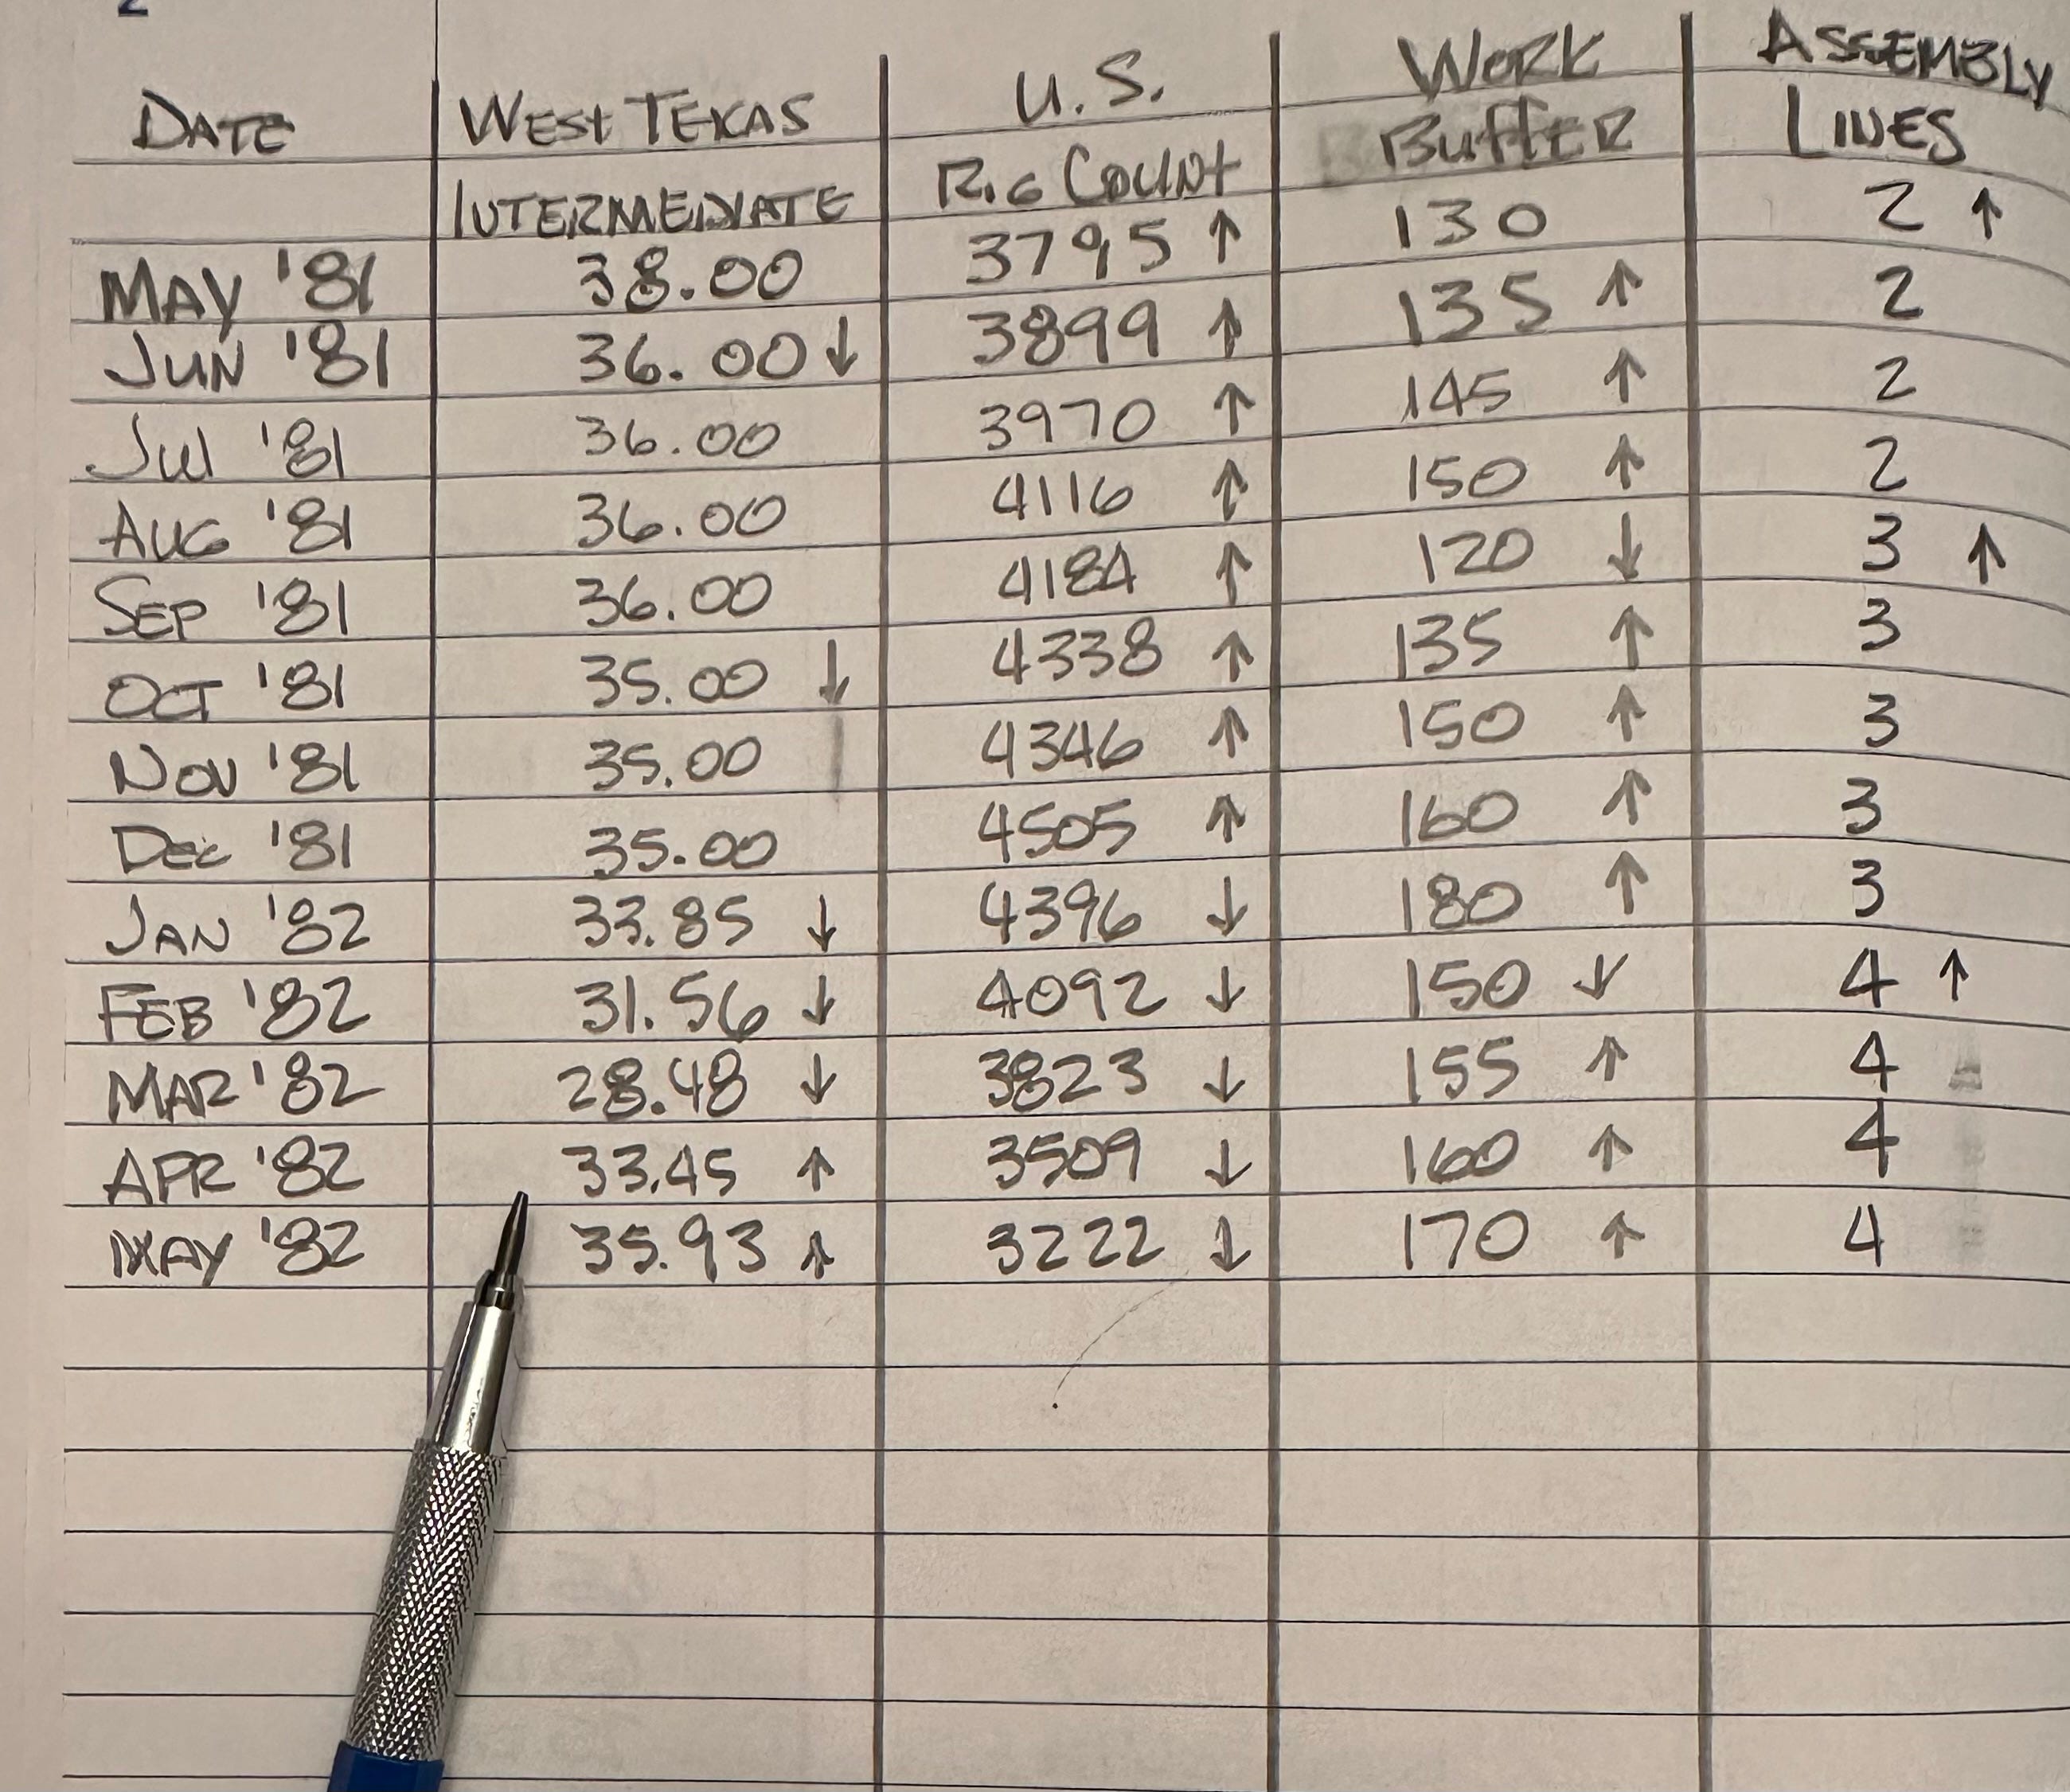 DATE WEST TEXAS U.S. WORK ASSEMBLY
INTERMEDIATE RIG COUNT BUFFER LINES
MAY '81 38.00 3795 ↑ 130 2 ↑
JUN '81 36.00 ↓ 3899 ↑ 135 ↑ 2
JUL '81 36.00 3970 ↑ 145 ↑ 2
AUG '81 36.00 4116 ↑ 150 ↑ 2
SEP '81 36.00 4184 ↑ 120 ↓ 3 ↑
OCT '81 35.00 ↓ 4338 ↑ 135 ↑ 3
NOV '81 35.00 4346 ↑ 150 ↑ 3
DEC '81 35.00 4505 ↑ 160 ↑ 3
JAN '82 33.85 ↓ 4396 ↓ 180 ↑ 3
FEB '82 31.56 ↓ 4092 ↓ 150 ↓ 4 ↑
MAR '82 28.48 ↓ 3823 ↓ 155 ↑ 4
APR '82 33.45 ↑ 3509 ↓ 160 ↑ 4
MAY '82 35.93 ↑ 3222 ↓ 170 ↑ 4